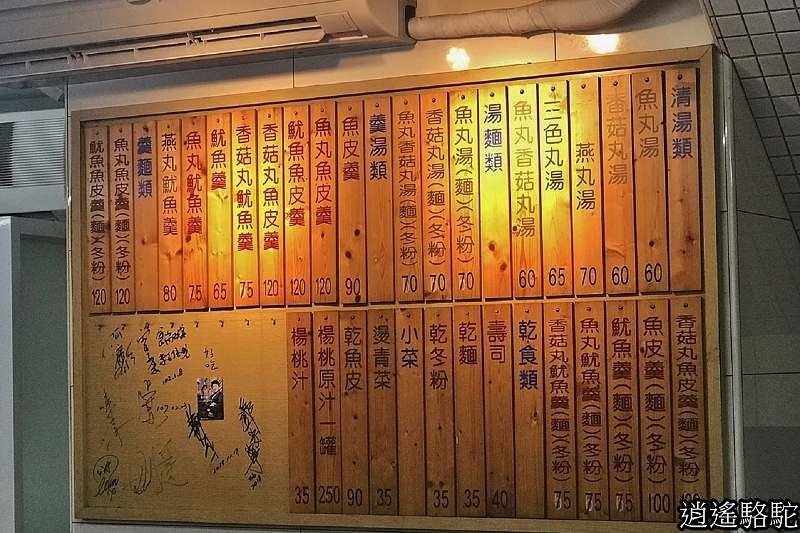 清湯類
魚丸湯 60
香菇丸湯 60
燕丸湯 70
三色丸湯 65
魚丸香菇丸湯 60
湯麵類
魚丸湯(麵)(冬粉) 70
香菇丸湯(麵)(冬粉) 70
魚丸香菇丸湯(麵)(冬粉) 70
羹湯類
魚皮羹 90
魚丸魚皮羹 120
魷魚魚皮羹 120
香菇丸魚皮羹 120
香菇丸魷魚羹 75
魷魚羹 65
魚丸魷魚羹 75
燕丸魷魚羹 80
羹麵類
魚丸魚皮羹(麵)(冬粉) 120
魷魚魚皮羹(麵)(冬粉) 120
香菇丸魚皮羹(麵)(冬粉)
魚皮羹(麵)(冬粉) 100
魷魚羹(麵)(冬粉) 75
魚丸魷魚羹(麵)(冬粉) 75
香菇丸魷魚羹(麵)(冬粉) 75
乾食類
壽司 40
乾麵 35
乾冬粉 35
小菜
燙青菜 35
乾魚皮 90
楊桃原汁一罐 250
楊桃汁 35
好吃
逍遙駱駝